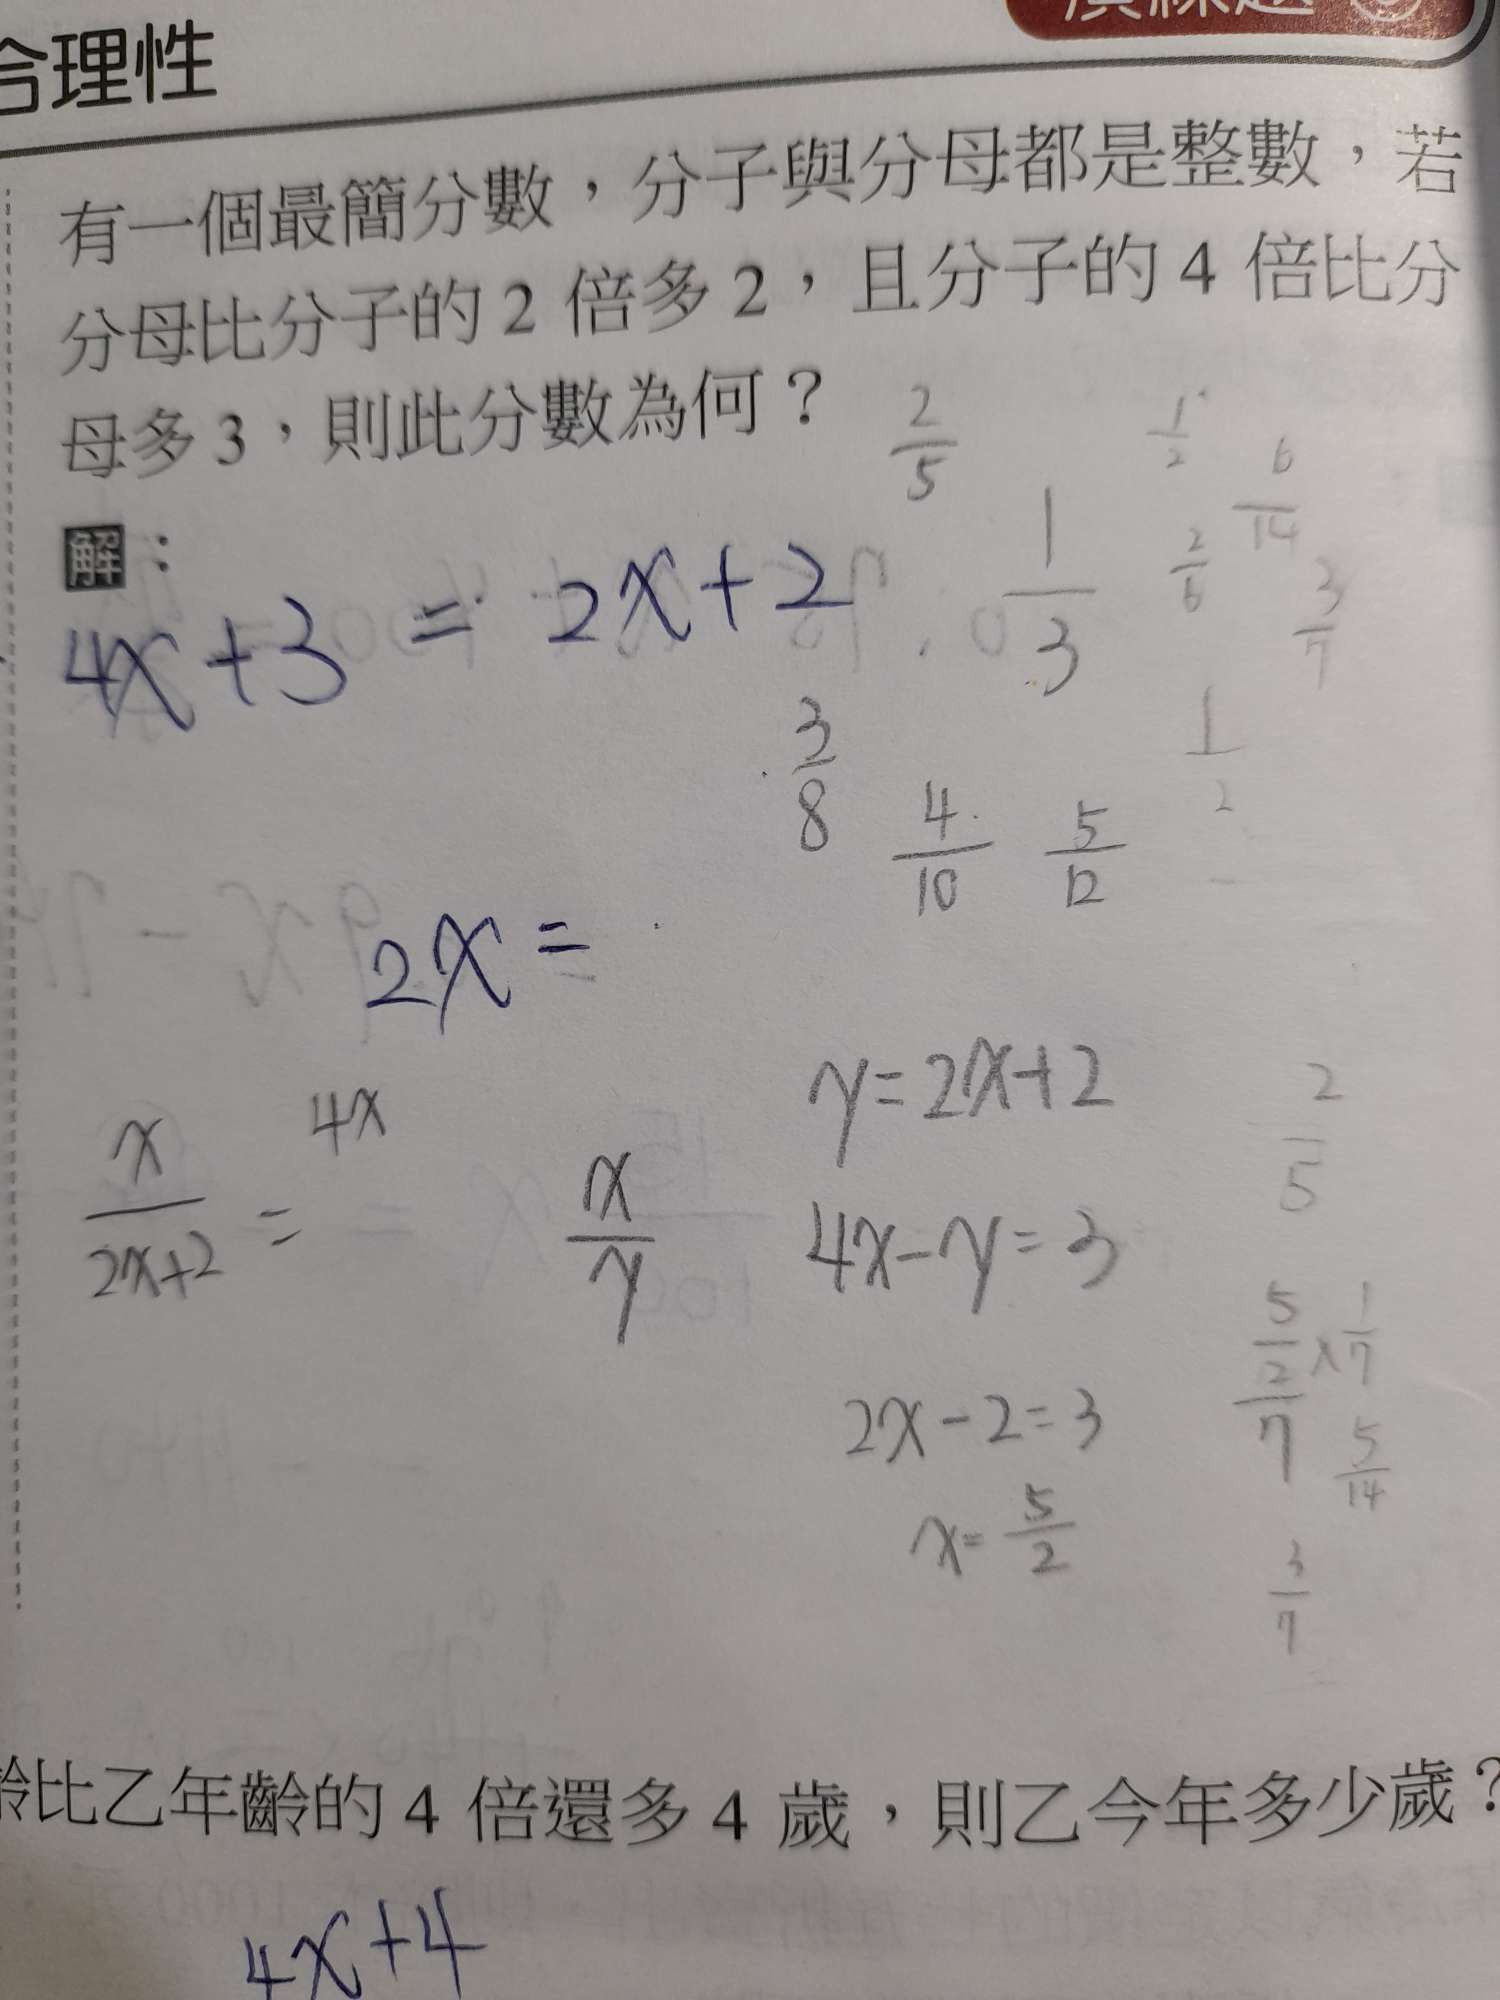 合理性
有一個最簡分數，分子與分母都是整數，若
分母比分子的 2 倍多 2，且分子的 4 倍比分
母多 3，則此分數為何？
2/5
1/2
6/14
解：
4x+3 = 2x+2
1/3
2/6
3/7
3/8
4/10
5/12
1/2
2x =
y=2x+2
x/(2x+2) = 4x
x/y
4x-y=3
2/5
2x-2=3
5/2/7 x 1/7
5/14
x= 5/2
3/7
齡比乙年齡的 4 倍還多 4 歲，則乙今年多少歲？
4x+4